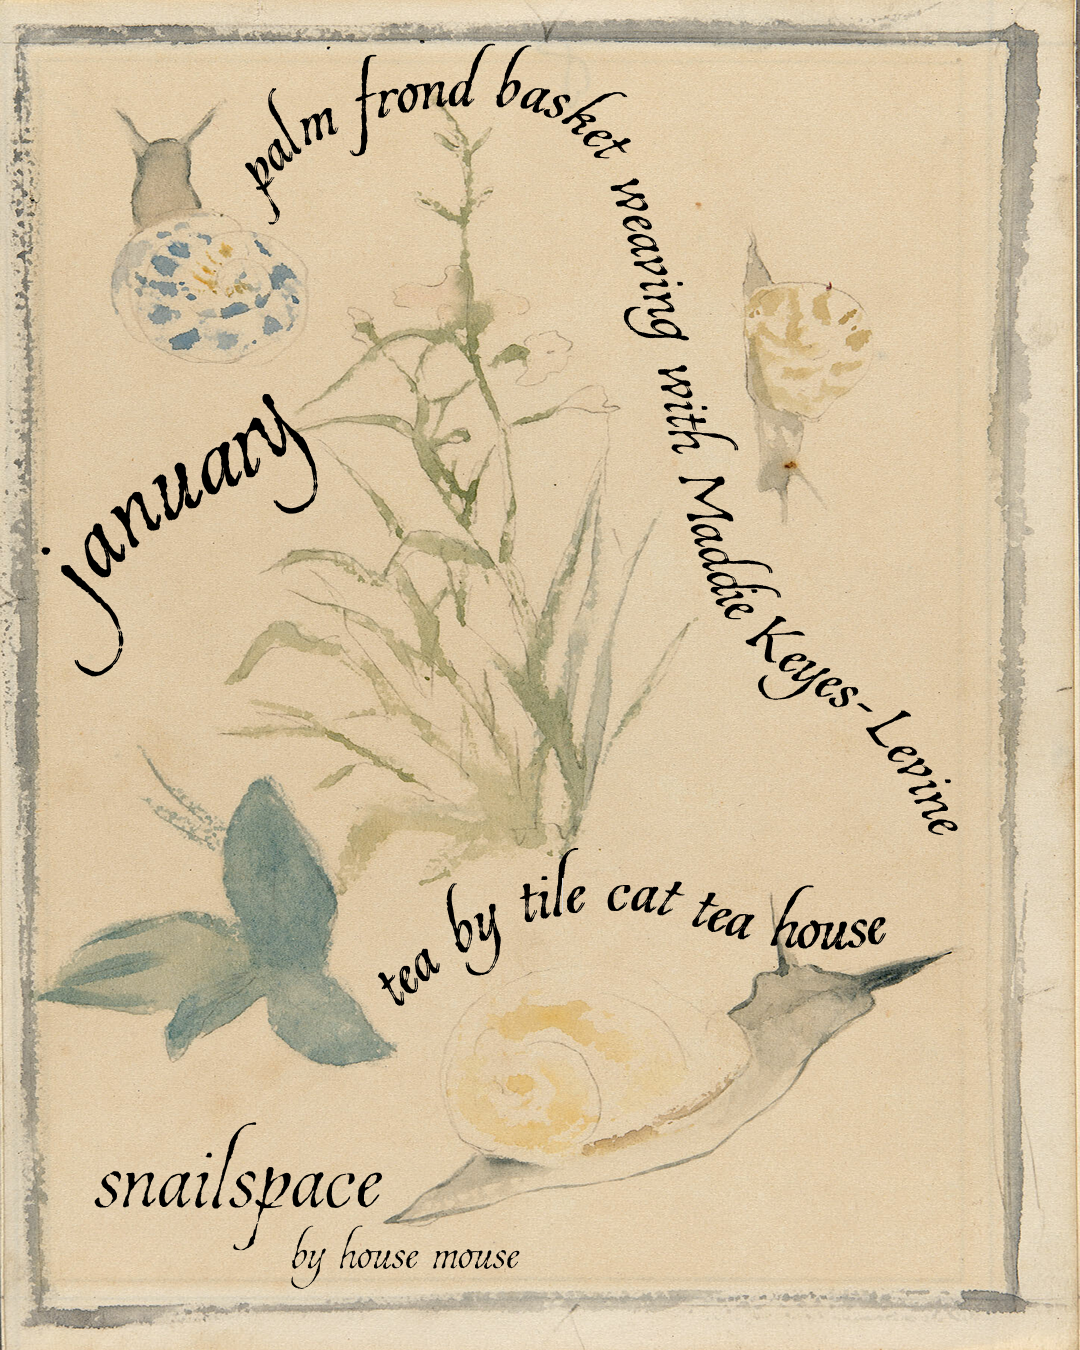 palm frond basket weaving with Maddie Keyes-Levine
january
tea by tile cat tea house
snailspace
by house mouse